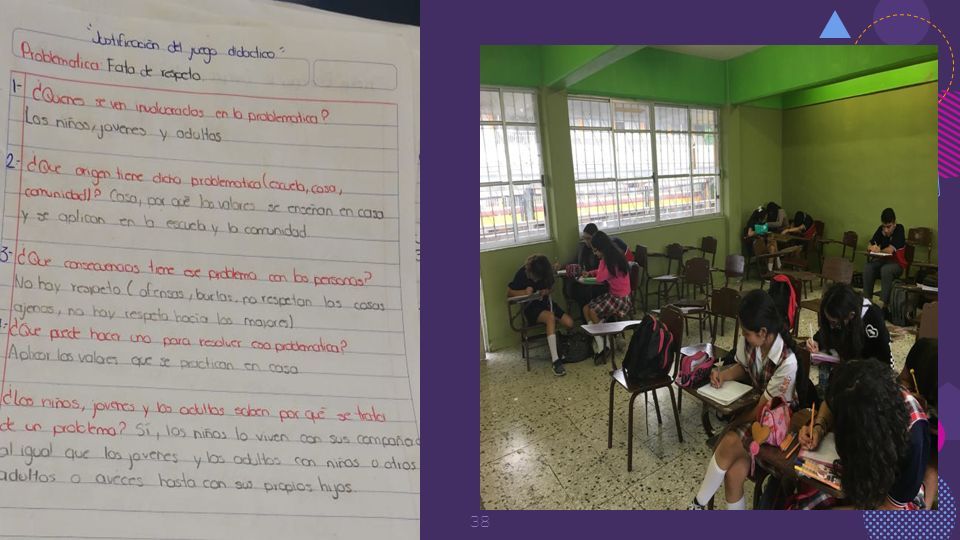 "Justificación del juego didactico"
Problematica: Falta de respeto.
1- ¿Quienes se ven involucrados en la problematica?
Los niños, jovenes y adultos
2- ¿Que origen tiene dicha problematica (escuela, casa,
comunidad)? Casa, por qué los valores se enseñan en casa
y se aplican en la escuela y la comunidad.
3- ¿Que consecuencias tiene ese problema con las personas?
No hay respeto (ofensas, burlas, no respetan las cosas
ajenas, no hay respeto hacia los mayores)
¿Que puede hacer uno para resolver esa problematica?
Aplicar los valores que se practican en casa
¿Los niños, jovenes y los adultos saben por qué se trata
de un problema? Sí, los niños lo viven con sus compañeros
al igual que los jovenes y los adultos con niños o otros
adultos o aveces hasta con sus propios hijos.
38